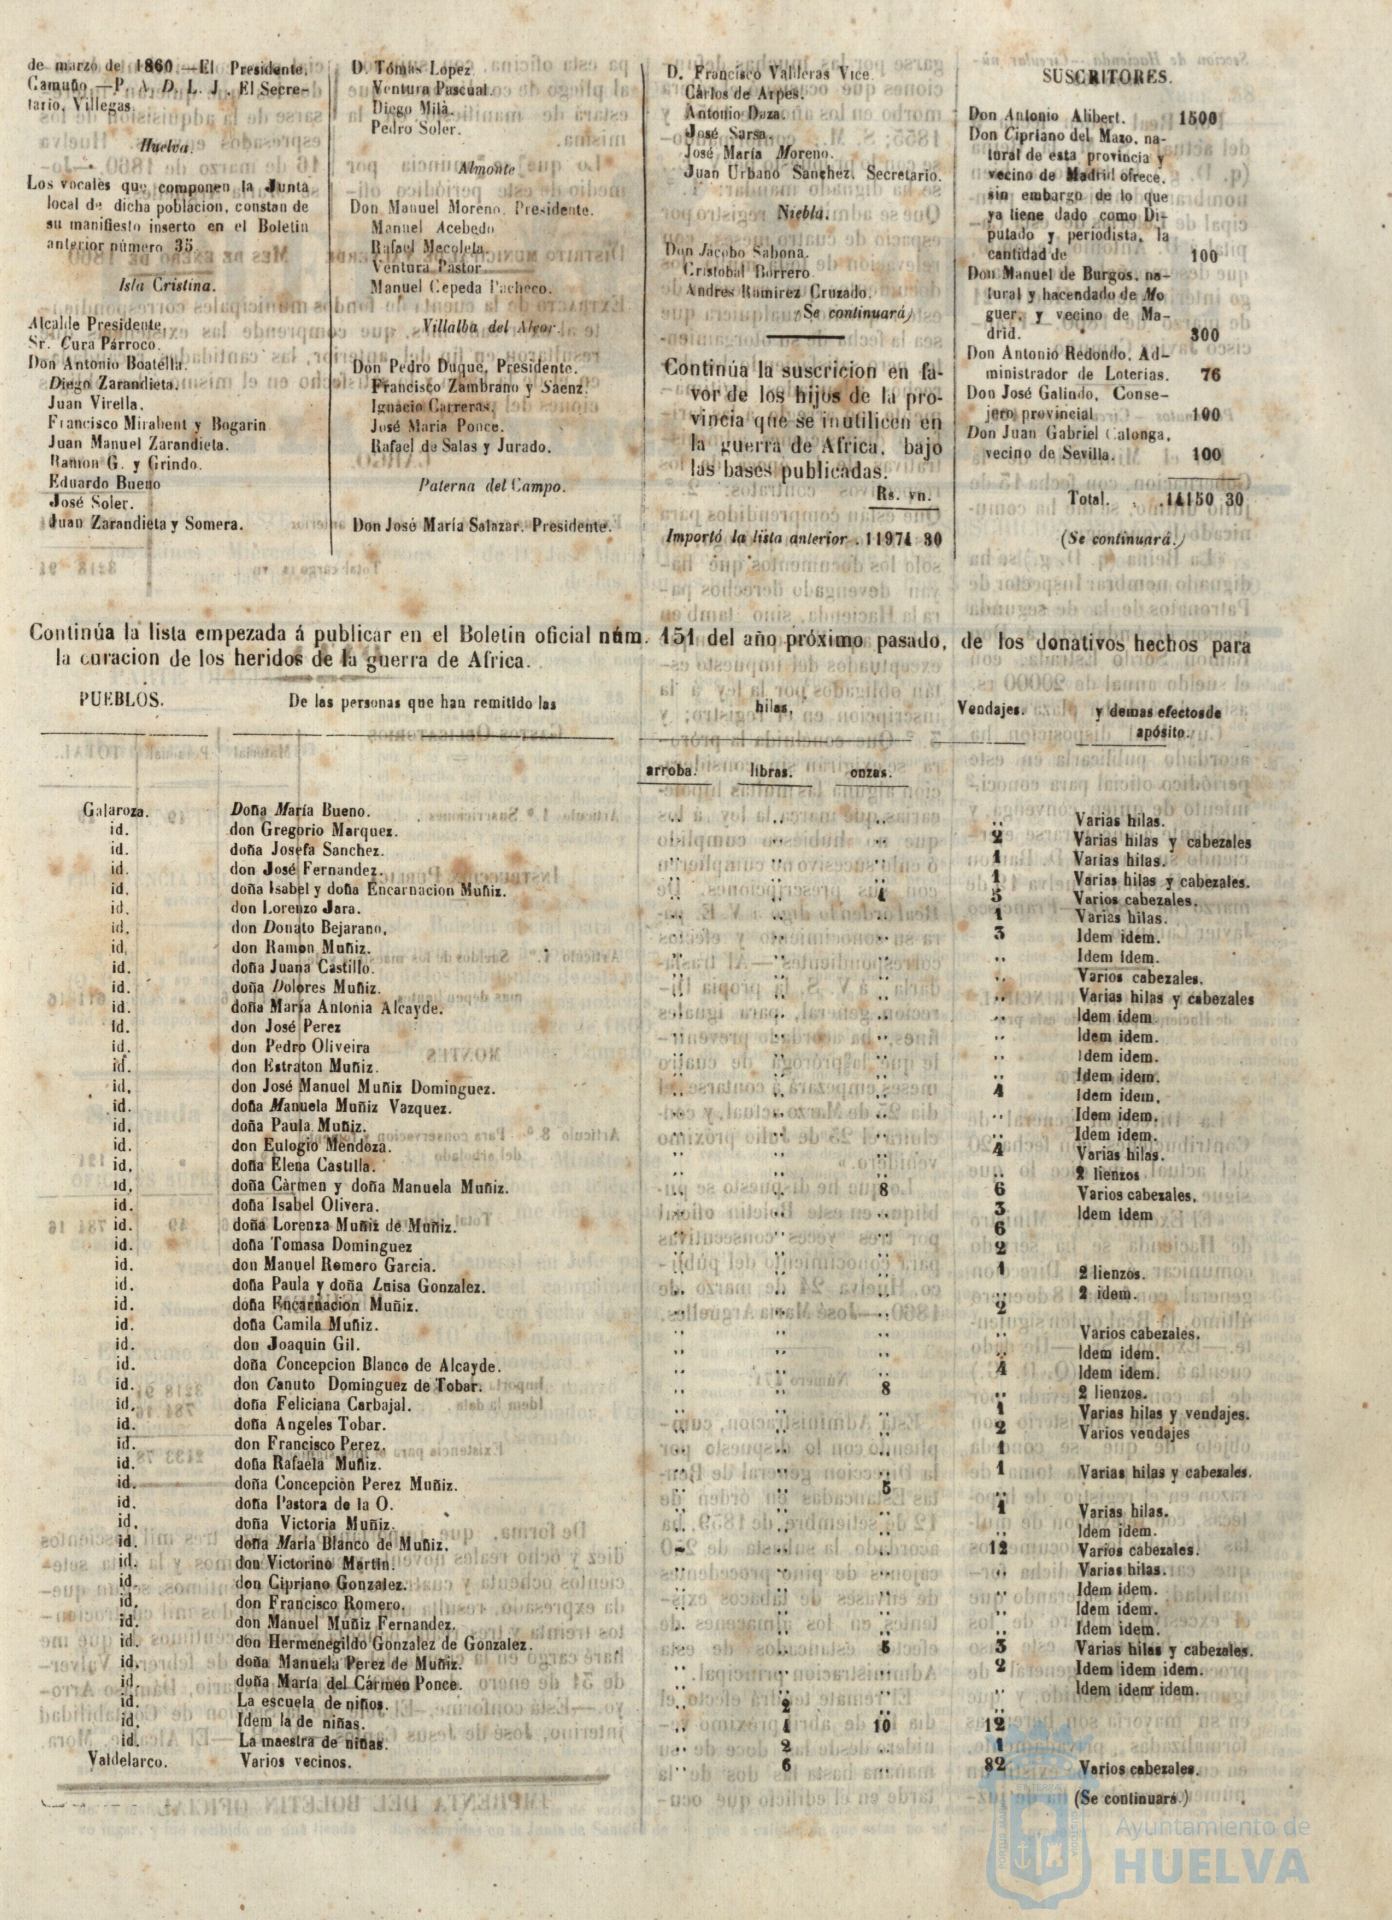 de marzo de 1860.—El Presidente,
Camuño.—P. A. D. L. J. El Secre-
tario, Villegas.
Huelva.
Los vocales que componen la Junta
local de dicha poblacion, constan de
su manifiesto inserto en el Boletin
anterior número 35.
Isla Cristina.
Alcalde Presidente,
Sr. Cura Párroco.
Don Antonio Boatella.
Diego Zarandieta.
Juan Virella.
Francisco Mirabent y Bogarin
Juan Manuel Zarandieta.
Ramon G. y Grindo.
Eduardo Bueno
José Soler.
Juan Zarandieta y Somera.
D. Tómas Lopez
Ventura Pascual.
Diego Milà.
Pedro Soler.
Almonte
Don Manuel Moreno, Presidente.
Manuel Acebedo
Rafael Mecoleta.
Ventura Pastor
Manuel Cepeda Pacheco.
Villalba del Alcor.
Don Pedro Duque, Presidente.
Francisco Zambrano y Saenz.
Ignacio Carreras.
José Maria Ponce.
Rafael de Salas y Jurado.
Paterna del Campo.
Don José María Salazar, Presidente.
D. Francisco Valderas Vice.
Cárlos de Arpes.
Antonio Daza.
José Sarsa.
José María Moreno.
Juan Urbano Sanchez. Secretario.
Niebla.
Don Jacobo Sabona.
Cristobal Borrero.
Andres Ramirez Cruzado.
(Se continuará)
Continúa la suscricion en fa-
vor de los hijos de la pro-
vincia que se inutilicen en
la guerra de Africa, bajo
las bases publicadas.
Rs. vn.
Importó la lista anterior . 11974 30
SUSCRITORES.
Don Antonio Alibert. 1500
Don Cipriano del Mazo, na-
tural de esta provincia y
vecino de Madrid ofrece,
sin embargo de lo que
ya tiene dado como Di-
putado y periodista, la
cantidad de 100
Don Manuel de Burgos, na-
tural y hacendado de Mo
guer, y vecino de Ma-
drid. 300
Don Antonio Redondo, Ad-
ministrador de Loterias. 76
Don José Galindo, Conse-
jero provincial 100
Don Juan Gabriel Calonga,
vecino de Sevilla. 100
Total. . .14150 30
(Se continuará.)
Continúa la lista empezada á publicar en el Boletin oficial núm. 151 del año próximo pasado, de los donativos hechos para
la curacion de los heridos de la guerra de Africa.
PUEBLOS. De las personas que han remitido las hilas, Vendajes. y demas efectos de
apósito.
arroba. libras. onzas.
Galaroza. Doña María Bueno. .. .. .. .. Varias hilas.
id. don Gregorio Marquez. .. .. .. 2 Varias hilas y cabezales
id. doña Josefa Sanchez. .. .. .. 1 Varias hilas.
id. don José Fernandez. .. .. .. 1 Varias hilas y cabezales.
id. doña Isabel y doña Encarnacion Muñiz. .. .. 4 5 Varios cabezales.
id. don Lorenzo Jara. .. .. .. 1 Varias hilas.
id. don Donato Bejarano, .. .. .. 3 Idem idem.
id. don Ramon Muñiz. .. .. .. .. Idem idem.
id. doña Juana Castillo. .. .. .. .. Varios cabezales.
id. doña Dolores Muñiz. .. .. .. .. Varias hilas y cabezales
id. doña María Antonia Alcayde. .. .. .. .. Idem idem
id. don José Perez .. .. .. .. Idem idem.
id. don Pedro Oliveira .. .. .. .. Idem idem.
id. don Estraton Muñiz. .. .. .. .. Idem idem.
id. don José Manuel Muñiz Dominguez. .. .. .. 4 Idem idem,
id. doña Manuela Muñiz Vazquez. .. .. .. .. Idem idem.
id. doña Paula Muñiz. .. .. .. .. Idem idem.
id. don Eulogio Mendoza. .. .. .. 4 Varias hilas.
id. doña Elena Castilla. .. .. .. .. 2 lienzos
id. doña Càrmen y doña Manuela Muñiz. .. .. 8 6 Varios cabezales.
id. doña Isabel Olivera. .. .. .. 3 Idem idem
id. doña Lorenza Muñiz de Muñiz. .. .. .. 6
id. doña Tomasa Dominguez .. .. .. 2
id. don Manuel Romero Garcia. .. .. .. 1 2 lienzos.
id. doña Paula y doña Luisa Gonzalez. .. .. .. .. 2 idem.
id. doña Encarnacion Muñiz. .. .. .. 2
id. doña Camila Muñiz. .. .. .. .. Varios cabezales.
id. don Joaquin Gil. .. .. .. .. Idem idem.
id. doña Concepcion Blanco de Alcayde. .. .. .. 4 Idem idem.
id. don Canuto Dominguez de Tobar. .. .. 8 .. 2 lienzos.
id. doña Feliciana Carbajal. .. .. .. 1 Varias hilas y vendajes.
id. doña Angeles Tobar. .. .. .. 2 Varios vendajes
id. don Francisco Perez. .. .. .. 1
id. doña Rafaela Muñiz. .. .. .. 1 Varias hilas y cabezales.
id. doña Concepcion Perez Muñiz. .. .. 5 ..
id. doña Pastora de la O. .. .. .. 1 Varias hilas.
id. doña Victoria Muñiz. .. .. .. .. Idem idem.
id. doña María Blanco de Muñiz. .. .. .. 12 Varios cabezales.
id. don Victorino Martin. .. .. .. .. Varias hilas.
id. don Cipriano Gonzalez. .. .. .. .. Idem idem.
id. don Francisco Romero. .. .. .. .. Idem idem.
id. don Manuel Muñiz Fernandez. .. .. .. .. Idem idem.
id. don Hermenegildo Gonzalez de Gonzalez. .. .. 5 3 Varias hilas y cabezales.
id. doña Manuela Perez de Muñiz. .. .. .. 2 Idem idem idem.
id. doña María del Cármen Ponce. .. .. .. .. Idem idem idem.
id. La escuela de niños. .. 2 .. ..
id. Idem la de niñas. .. 1 10 12
id. La maestra de niñas. .. 2 .. 1
Valdelarco. Varios vecinos. .. 6 .. 82 Varios cabezales.
(Se continuará.)
Ayuntamiento de
HUELVA